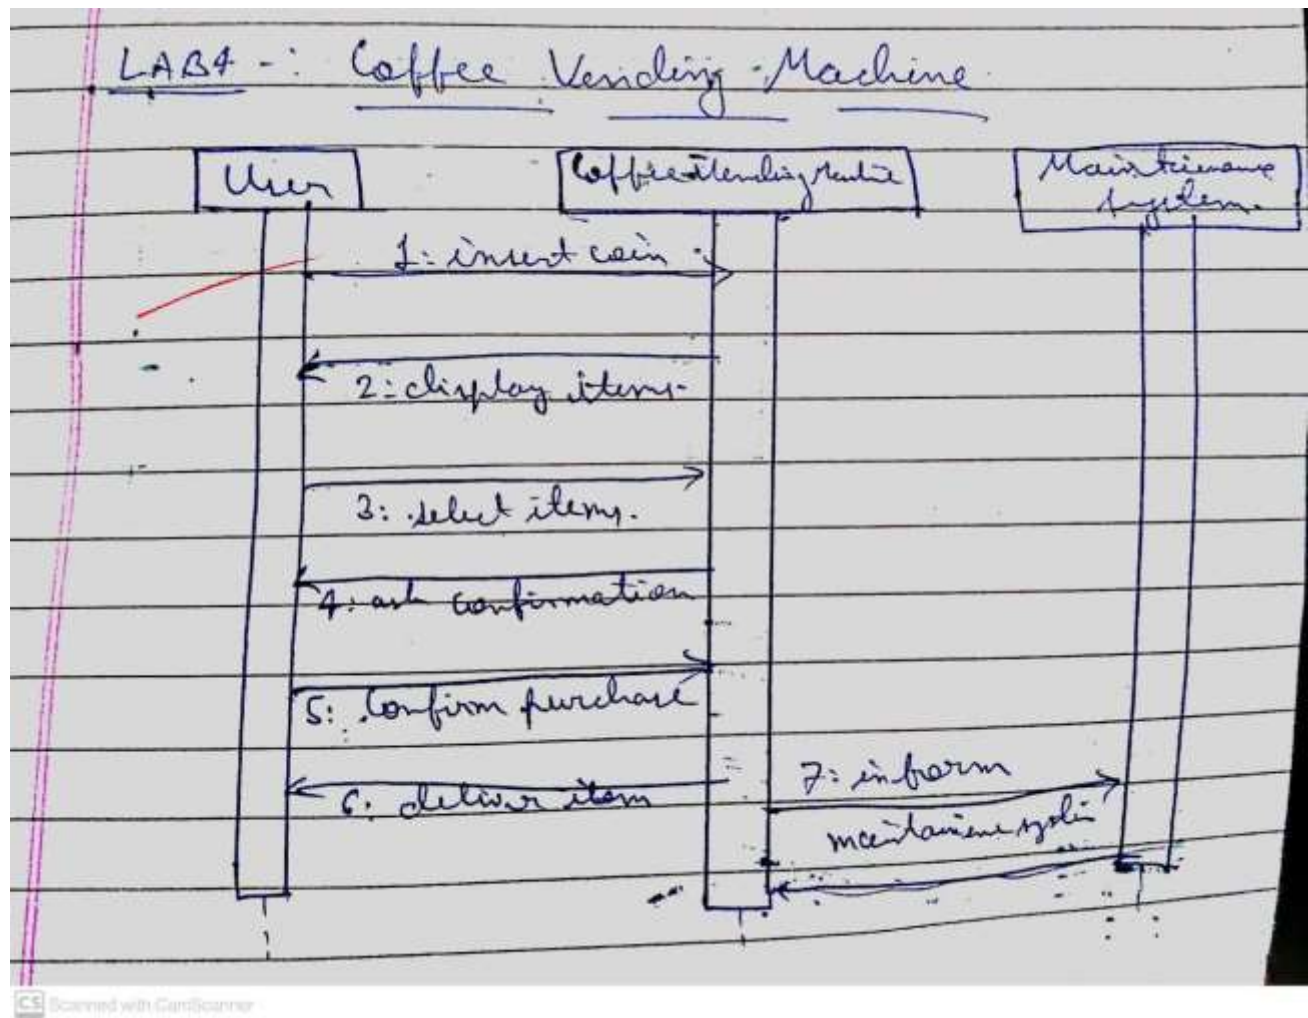 LAB4 -: Coffee Vending Machine
User
Coffee Vending Machine
Maintenance
system.
1: insert coin
2: display items.
3: select items.
4: ask confirmation
5: Confirm purchase
6: deliver item
7: inform
maintainene system
CS Scanned with CamScanner